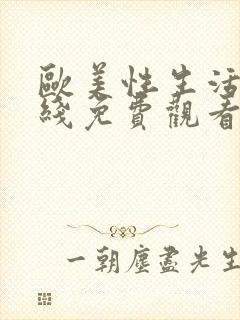 歐美性生活
綫免費觀看
一朝塵盡光生